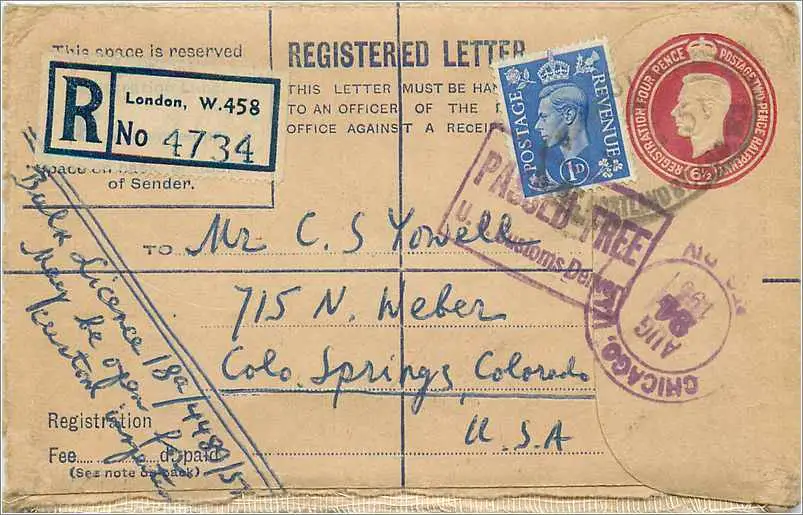 This space is reserved
R
London, W.458
No 4734
of Sender.
REGISTERED LETTER
THIS LETTER MUST BE HAN
TO AN OFFICER OF THE
OFFICE AGAINST A RECEI
POSTAGE REVENUE
1D
REGISTRATION FOUR PENCE POSTAGE TWO PENCE HALFPENNY
6½
PASSED FREE
U. Customs, Denver
CHICAGO,
AUG
24
195
TO Mr C. S Yowell
715 N. Weber
Colo. Springs, Colorado
U.S.A
Bulk Licence 18a/4489/51
May be open for
Custom
Registration
Fee d. paid
(See note on back)